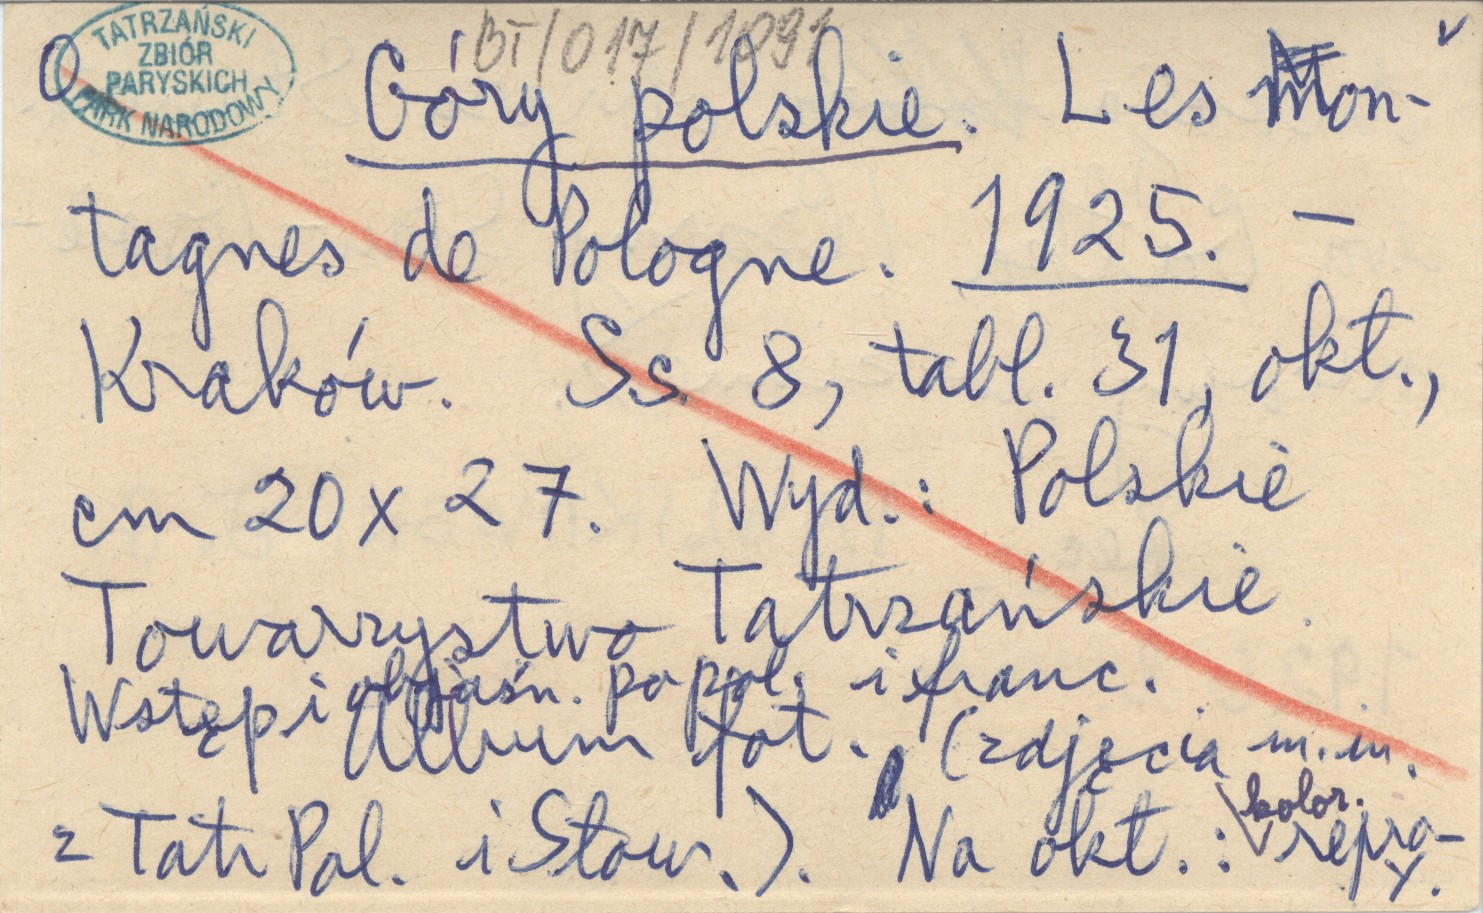 TATRZAŃSKI
ZBIÓR
PARYSKICH
PARK NARODOWY
BT/017/1891
O
Góry polskie. Les Mon-
tagnes de Pologne. 1925. –
Kraków. Ss. 8, tabl. 31, okł.,
cm 20 x 27. Wyd.: Polskie
Towarzystwo Tatrzańskie.
Wstęp i objaśn. po pol. i franc.
Album fot. (zdjęcia m.in.
z Tatr Pol. i Słow.). Na okł.: kolor. repro-